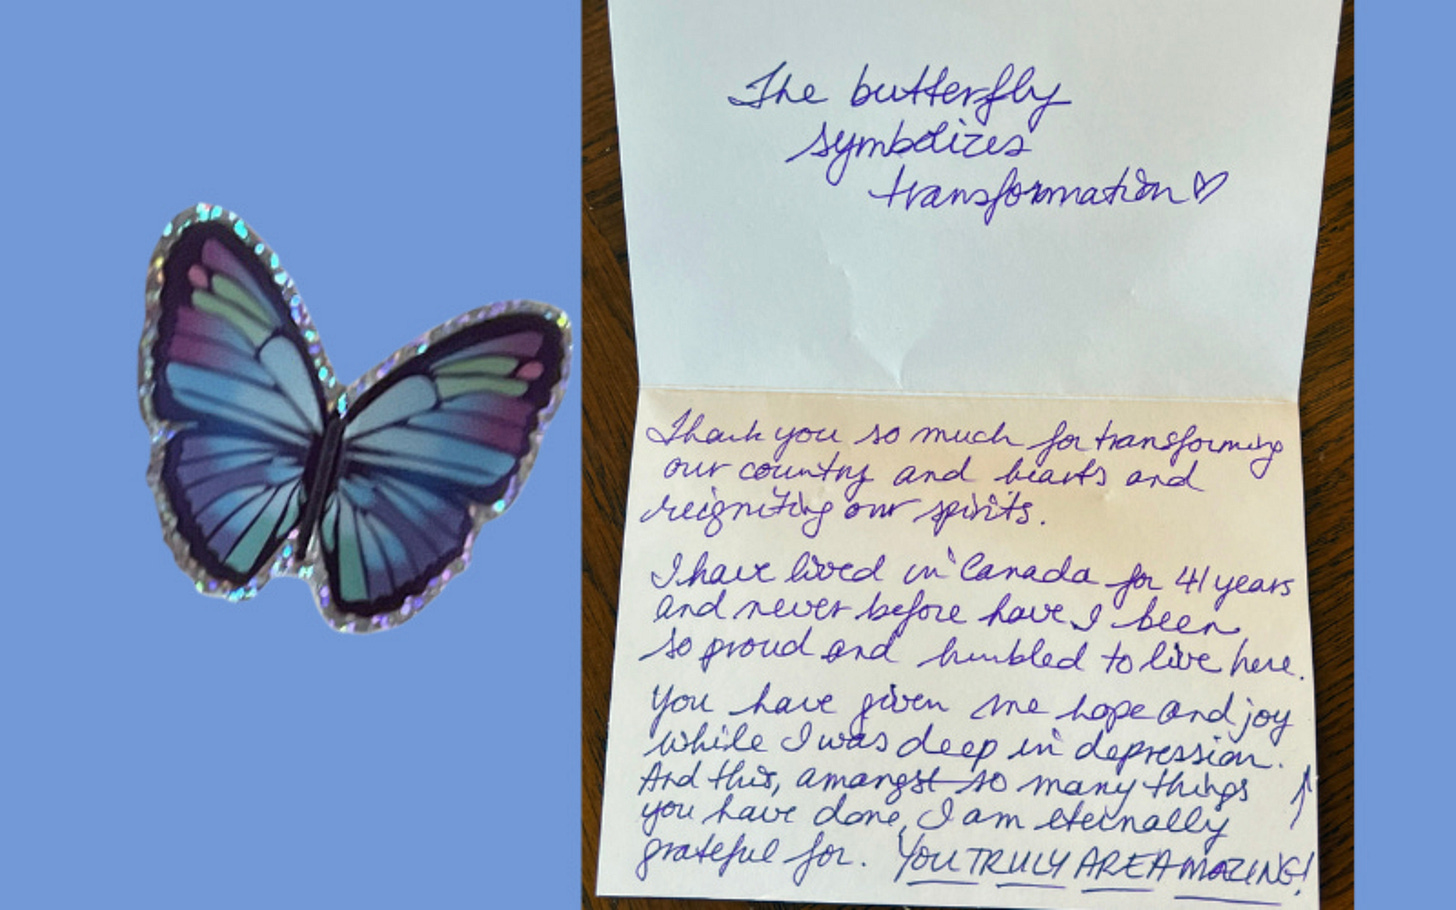 The butterfly
symbolizes
transformation♡
Thank you so much for transforming
our country and hearts and
reigniting our spirits.
I have lived in Canada for 41 years
and never before have I been
so proud and humbled to live here.
You have given me hope and joy
while I was deep in depression.
And this, amangst so many things ↑
you have done, I am eternally
grateful for. YOU TRULY ARE AMAZING!